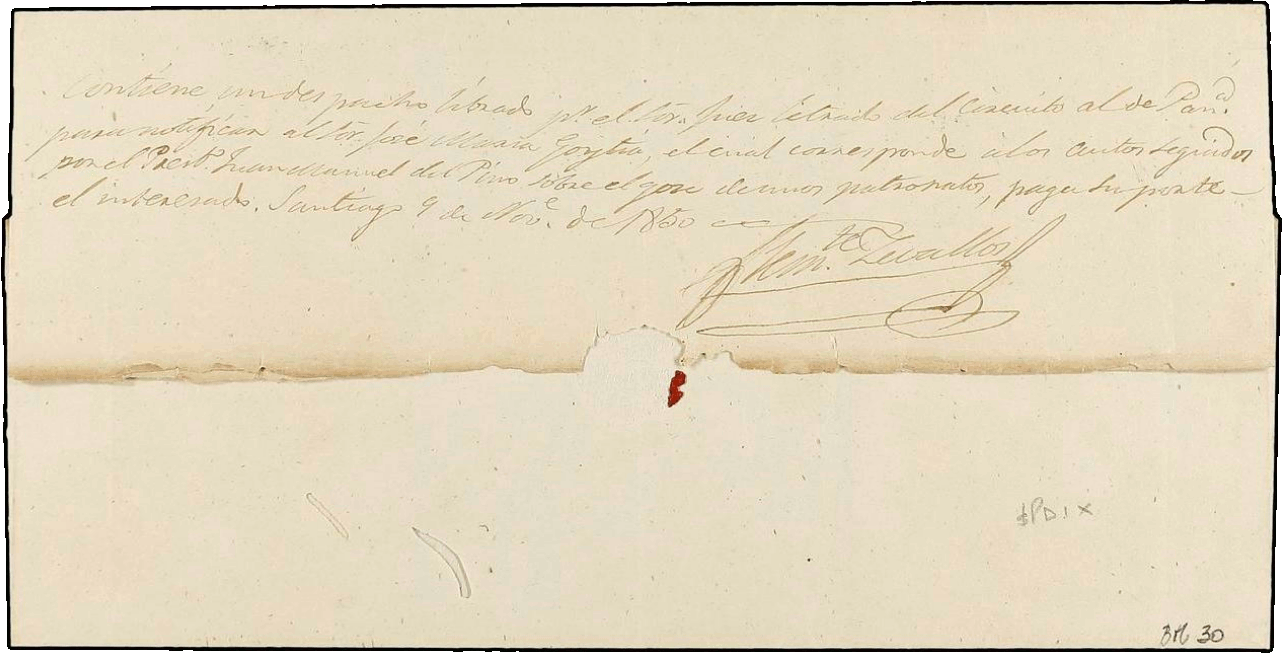 Contiene un despacho librado pr. el Sor. Juez Letrado del Circuito al de Pand.
para notificar al Sor. José Maria Goytia, el cual corresponde á los autos seguidos
por el Presbo. Juan Manuel del Pino sobre el goze de unos patronatos, paga su porte
el interesado. Santiago 9 de Nove. de 1850
Clemte. Zevallos
BM 30